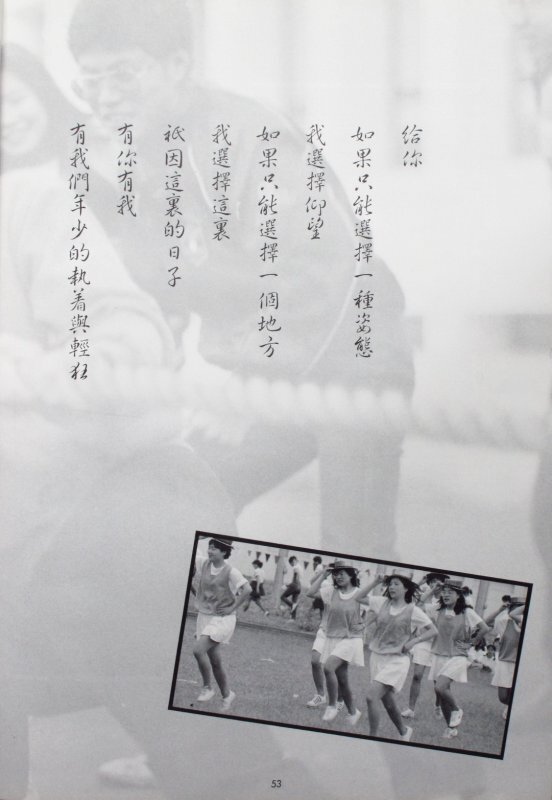 給你
如果只能選擇一種姿態
我選擇仰望
如果只能選擇一個地方
我選擇這裏
祇因這裏的日子
有你有我
有我們年少的執着與輕狂
53